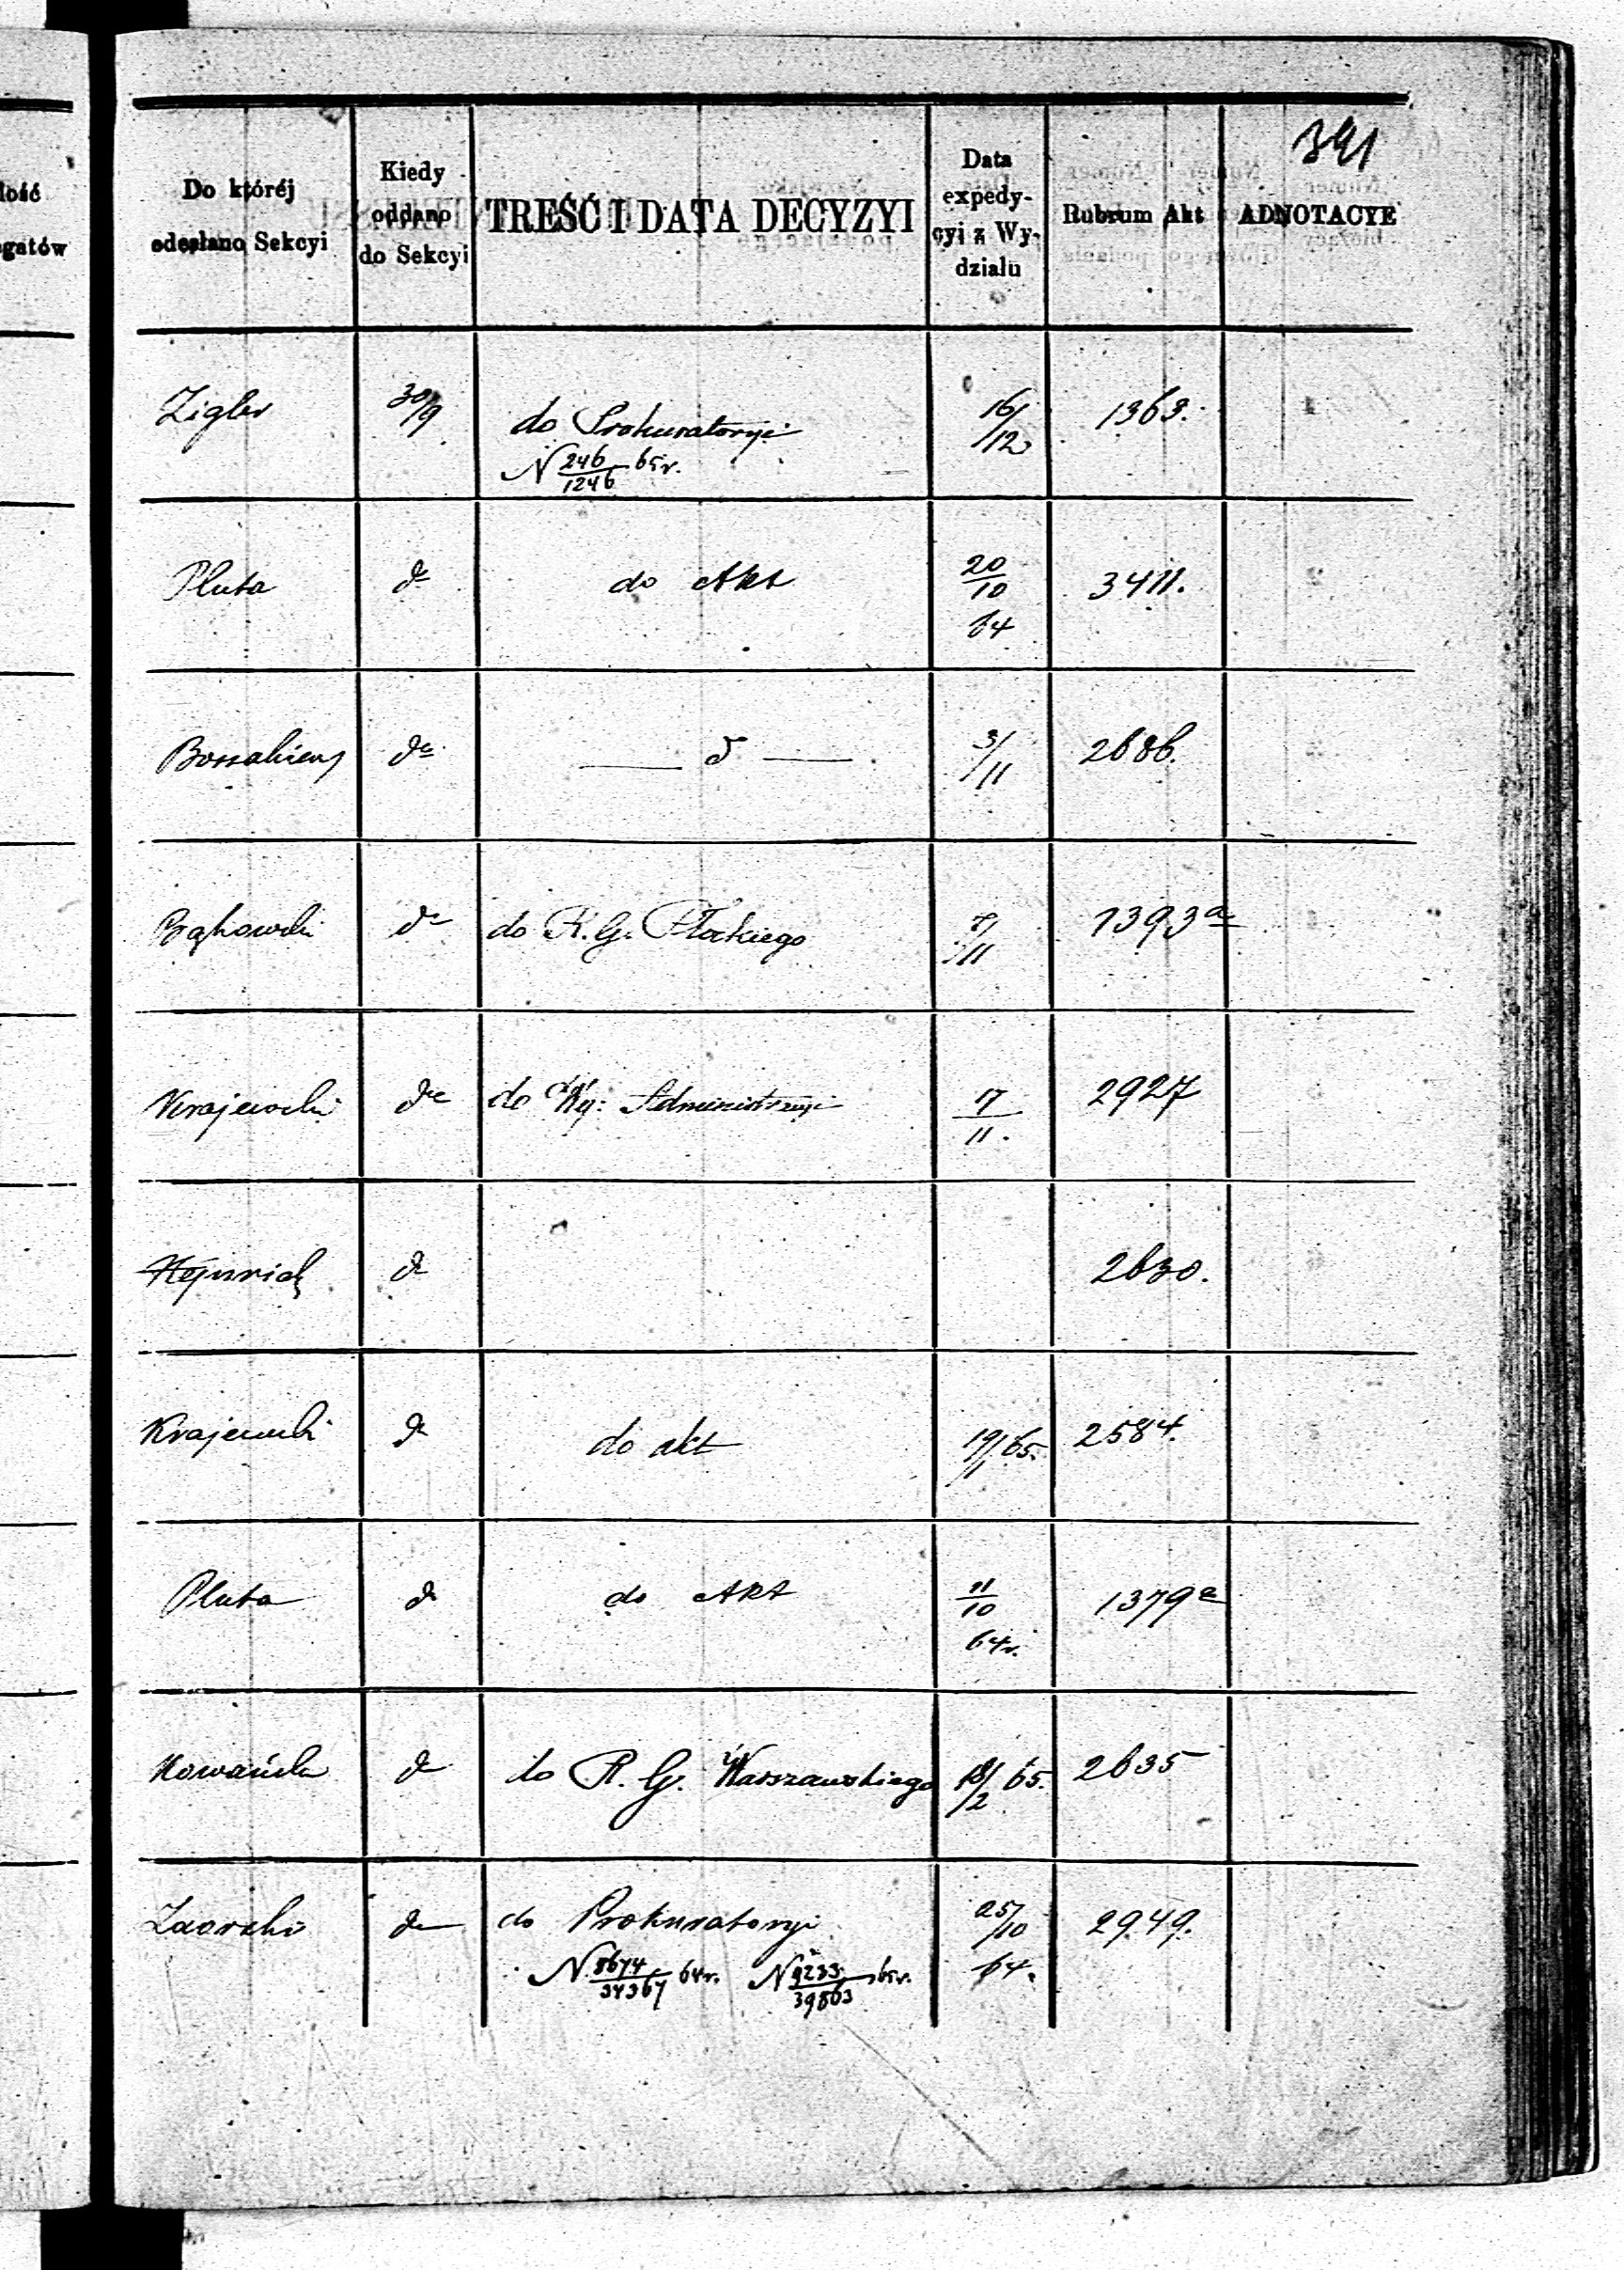 391
lość
gatów
Do któréj
odesłano Sekcyi
Kiedy
oddano
do Sekcyi
TREŚĆ I DATA DECYZYI
Data
expedy-
cyi z Wy-
działu
Rubrum Akt
ADNOTACYE
Zigler 30/9 do Prokuratoryi 16/12 1363.
N 246/1246 65 r.
Pluta do Akt 20/10 3411.
64
3/11 2686.
Bąkowski do R. G. Płockiego 7/11 1393a
Krajewski do Administracyi 17/11. 2927
Hejnrich 2630.
Krajewski do akt 19/1 65. 2584.
Pluta do Akt 11/10 1379a
64 r.
Nowański do R. G. Warszawskiego 18/2 65. 2635
Zaorski do Prokuratoryi 25/10 2949.
N 8674/34367 64 r. N 9233/39803 65 r. 64.